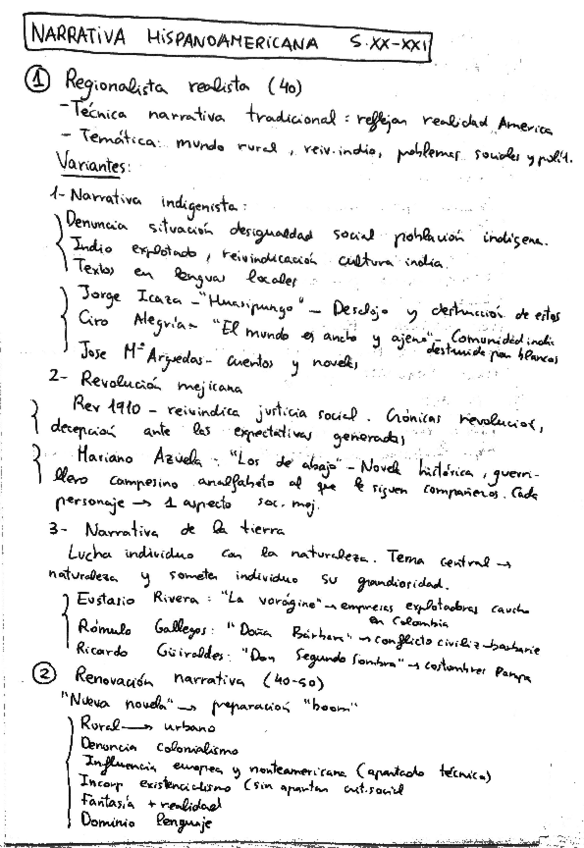 NARRATIVA HISPANOAMERICANA S.XX-XXI
1 Regionalista realista (40)
-Técnica narrativa tradicional: reflejan realidad America
- Temática: mundo rural, reiv. indio, problemas sociales y polít.
Variantes:
1- Narrativa indigenista:
Denuncia situación desigualdad social población indígena.
Indio explotado, reivindicación cultura india.
Textos en lenguas locales
Jorge Icaza - "Huasipungo" - Desalojo y destrucción de estos
Ciro Alegría - "El mundo es ancho y ajeno" - Comunidad india
destruida por blancos
Jose Mª Arguedas - cuentos y novelas
2- Revolución mejicana
Rev 1910 - reivindica justicia social. Crónicas revolución,
decepción ante las expectativas generadas
Mariano Azuela - "Los de abajo" - Novela histórica, guerri-
llero campesino analfabeto al que le siguen compañeros. Cada
personaje → 1 aspecto soc. mej.
3- Narrativa de la tierra
Lucha individuo con la naturaleza. Tema central →
naturaleza y someter individuo su grandiosidad.
Eustasio Rivera: "La vorágine" → empresas explotadoras caucho
en Colombia
Rómulo Gallegos: "Doña Bárbara" → conflicto civiliz-barbarie
Ricardo Güiraldes: "Don Segundo Sombra" → costumbres Pampa
2 Renovación narrativa (40-50)
"Nueva novela" → preparación "boom"
Rural → urbano
Denuncia colonialismo
Influencia europea y norteamericana (apartado técnica)
Incorp existencialismo (sin apartar
Fantasía + realidad
Dominio lenguaje